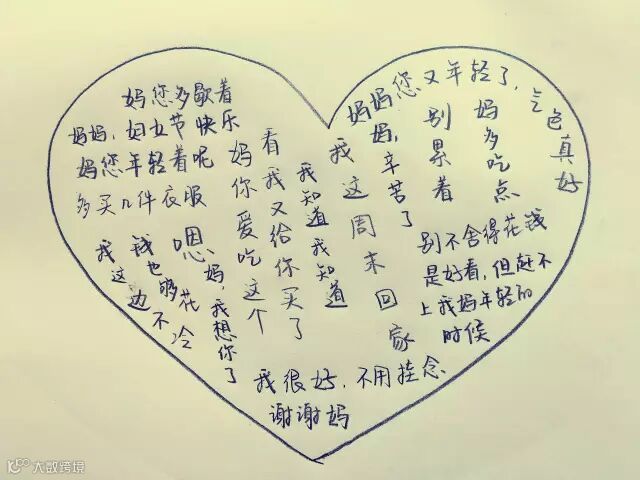 妈您多歇着
妈妈，妇女节快乐
妈您年轻着呢
多买几件衣服
我这边不冷
钱也够花
嗯
妈，我想你了
妈你爱吃这个
看我又给你买了
我知道我知道
我这周末回家
妈，辛苦了
妈妈您又年轻了，气色真好
别累着
妈多吃点
别不舍得花钱
是好看，但赶不
上我妈年轻的
时候
我很好，不用挂念
谢谢妈
大数跨境